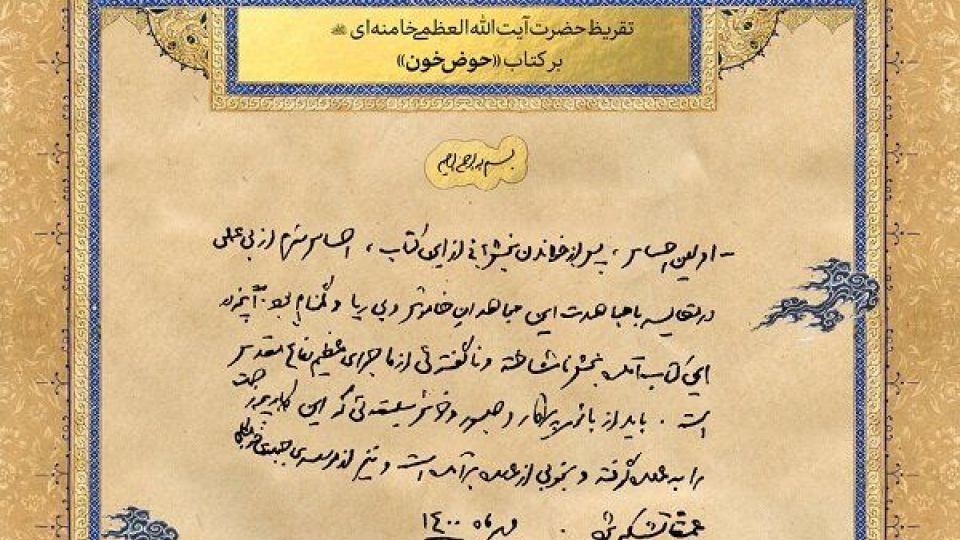 تقریظ حضرت آیت الله العظمی خامنه‌ای
بر کتاب «حوض خون»
بسم الله الرحمن الرحیم
- اولین احساس، پس از خواندن بخشهائی از این کتاب، احساس شرم از بی عملی
در مقایسه با مجاهدت این مجاهدان خاموش و بی ریا و گمنام بود. آنچه در
این کتاب آمده بخش ناشناخته و ناگفته ئی از ماجرای عظیم دفاع مقدس
است. باید از بانوی پرکار و صبور و خوش سلیقه ئی که این کار پر زحمت
را به عهده گرفته و بخوبی از عهده برآمده است و نیز از مؤسسه‌ی جبهه‌ی فرهنگی
عمیقاً تشکر شود.
مهرماه ۱۴۰۰